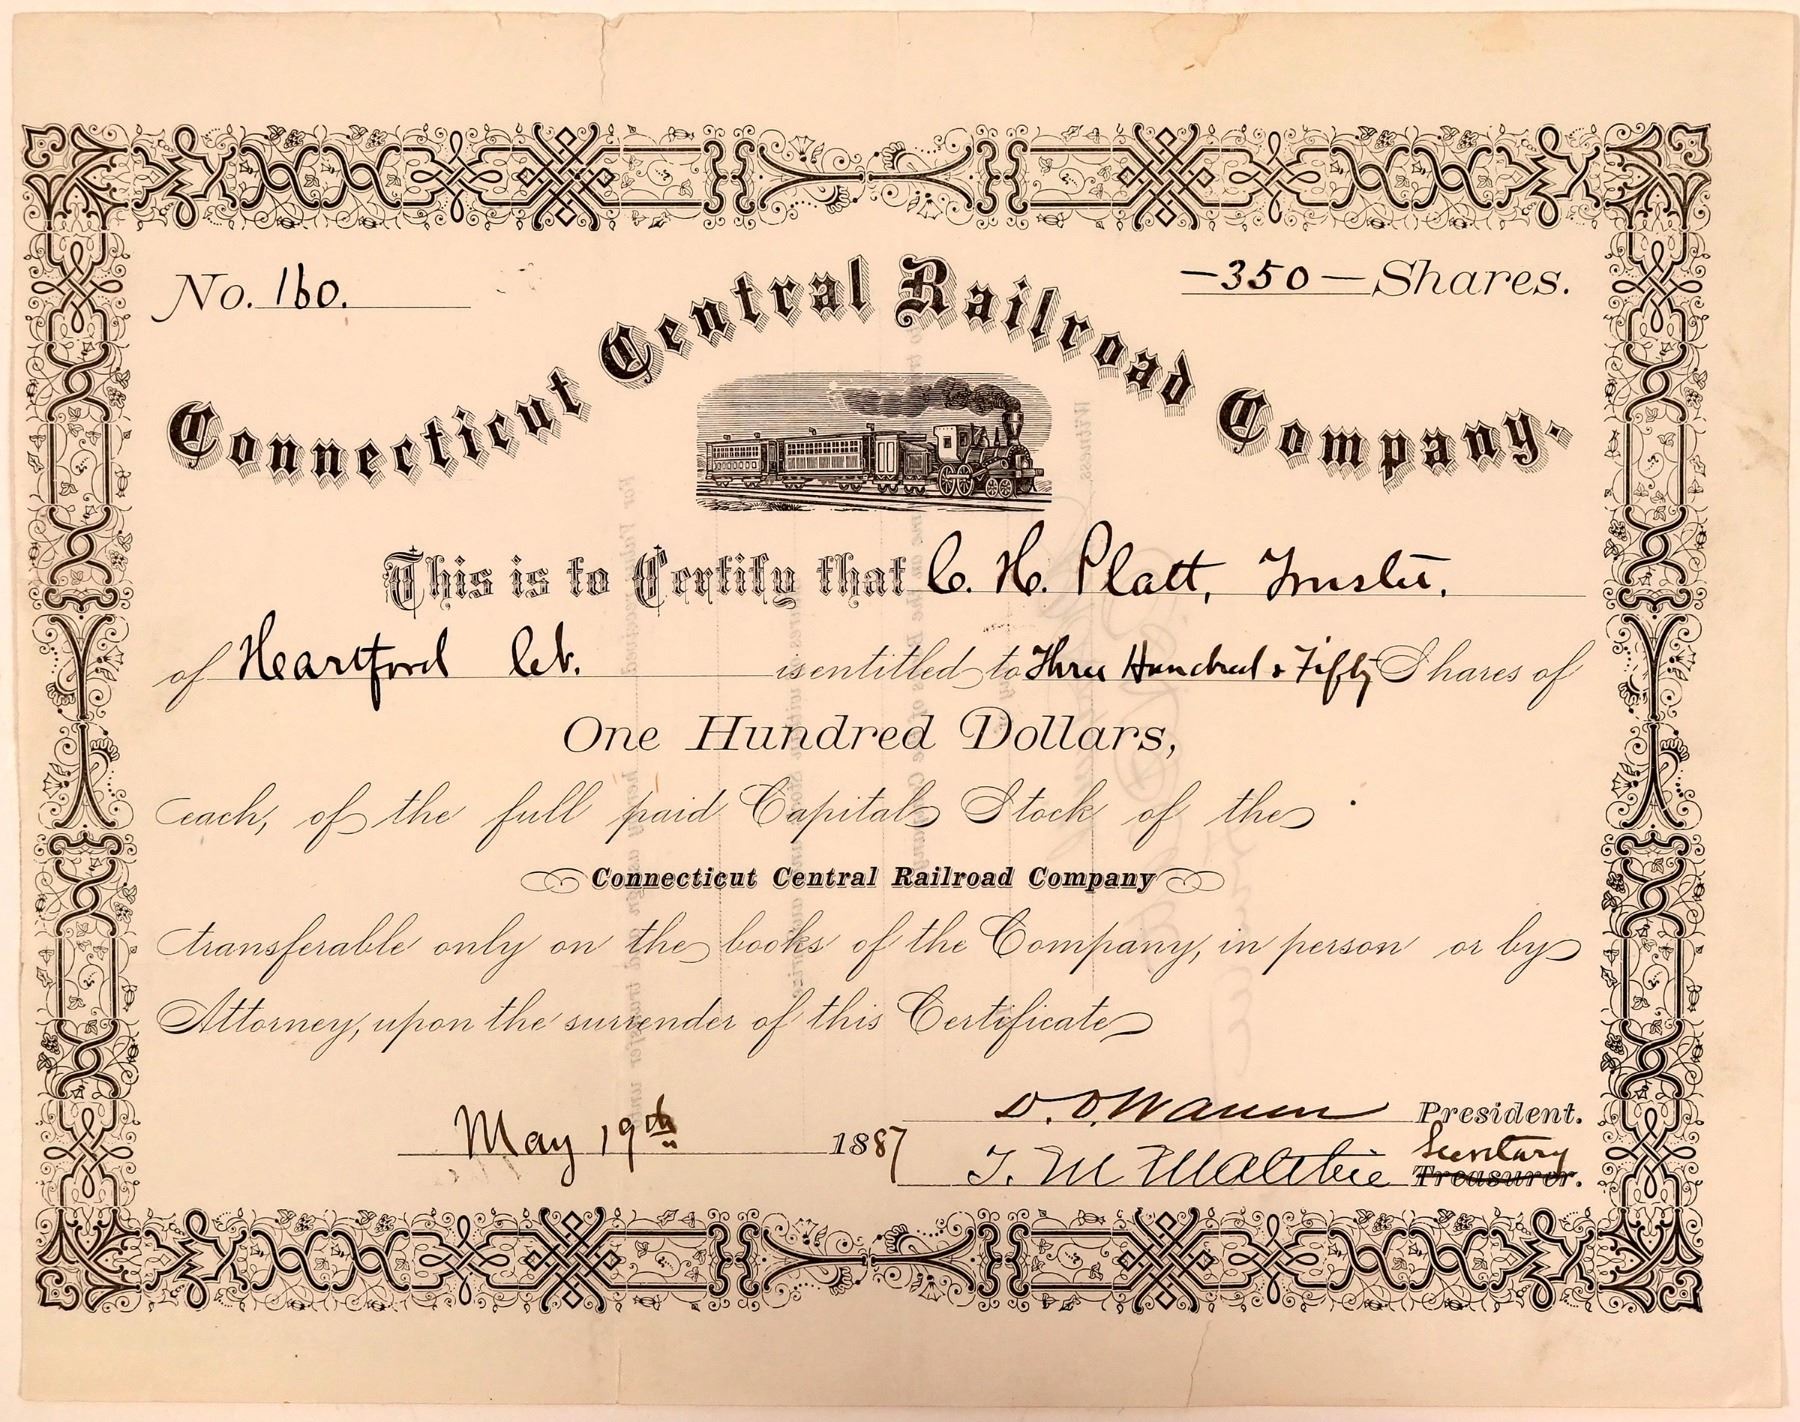 No. 160.
—350— Shares.
Connecticut Central Railroad Company.
This is to Certify that C. H. Platt, Trustee.
of Heartford Ct. is entitled to Three Hundred & Fifty Shares of
One Hundred Dollars,
each, of the full paid Capital Stock of the
Connecticut Central Railroad Company
transferable only on the books of the Company, in person or by
Attorney, upon the surrender of this Certificate
May 19th 1887
D. D. Warren President.
T. M. Maltbie Secretary
Treasurer.